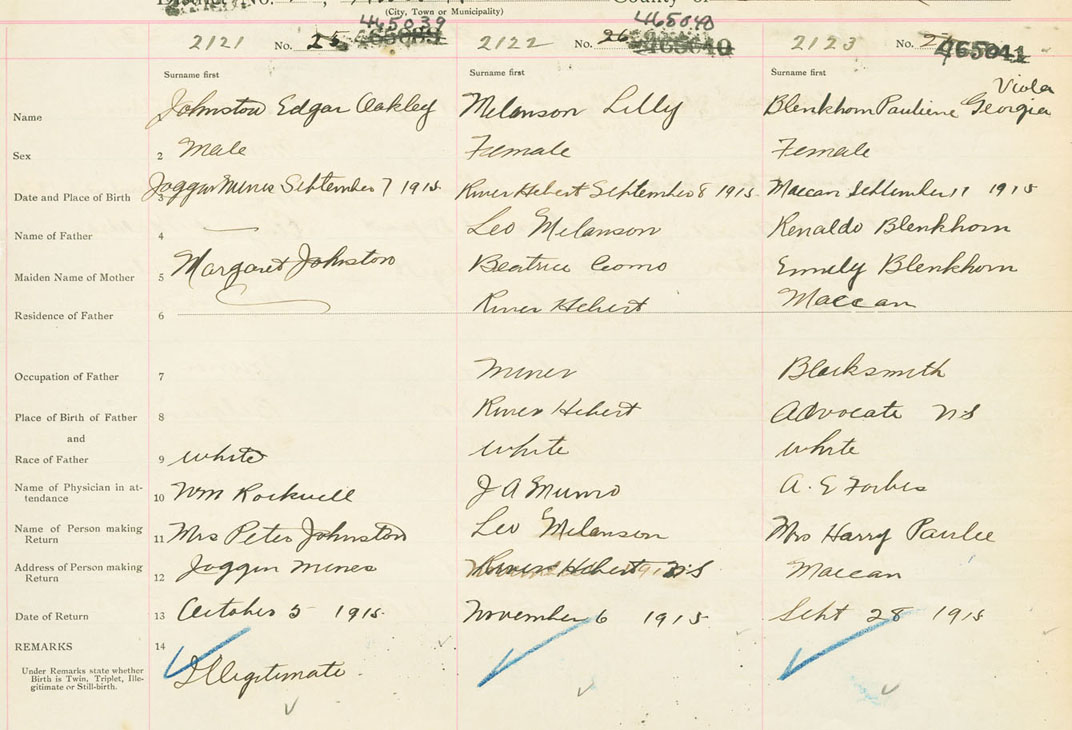 (City, Town or Municipality)
465039 465040
2121 No. 25 465039 2122 No. 26 465040 2123 No. 465041
Surname first Surname first Surname first
Viola
Name Johnston Edgar Oakley Melanson Lilly Blenkhorn Pauliene Georgia
Sex 2 Male Female Female
Date and Place of Birth 3 Joggin Mines September 7 1915 River Hebert September 8 1915 Maccan September 11 1915
Name of Father 4 Leo Melanson Renaldo Blenkhorn
Maiden Name of Mother 5 Margaret Johnston Beatrice Como Emily Blenkhorn
Residence of Father 6 River Hebert Maccan
Occupation of Father 7 Miner Blacksmith
Place of Birth of Father 8 River Hebert Advocate NS
and
Race of Father 9 White White White
Name of Physician in at-
tendance 10 Wm Rockwell J A Munro A. E Forbes
Name of Person making
Return 11 Mrs Peter Johnston Leo Melanson Mrs Harry
Address of Person making
Return 12 Joggin Mines River Hebert N.S Maccan
Date of Return 13 October 5 1915 November 6 1915 Sept 28 1915
REMARKS 14
Under Remarks state whether
Birth is Twin, Triplet, Ille-
gitimate or Still-birth.
Illegitimate